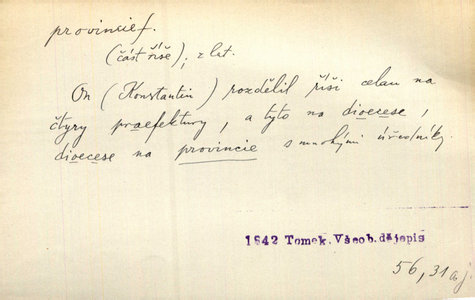 provincie f.
(část říše); z lat.
On (Konstantin) rozdělil říši celau na
čtyry praefektury, a tyto na dioecese,
dioecese na provincie s mnohými úředníky.
1842 Tomek. Všeob. dějepis
56, 31 a j.